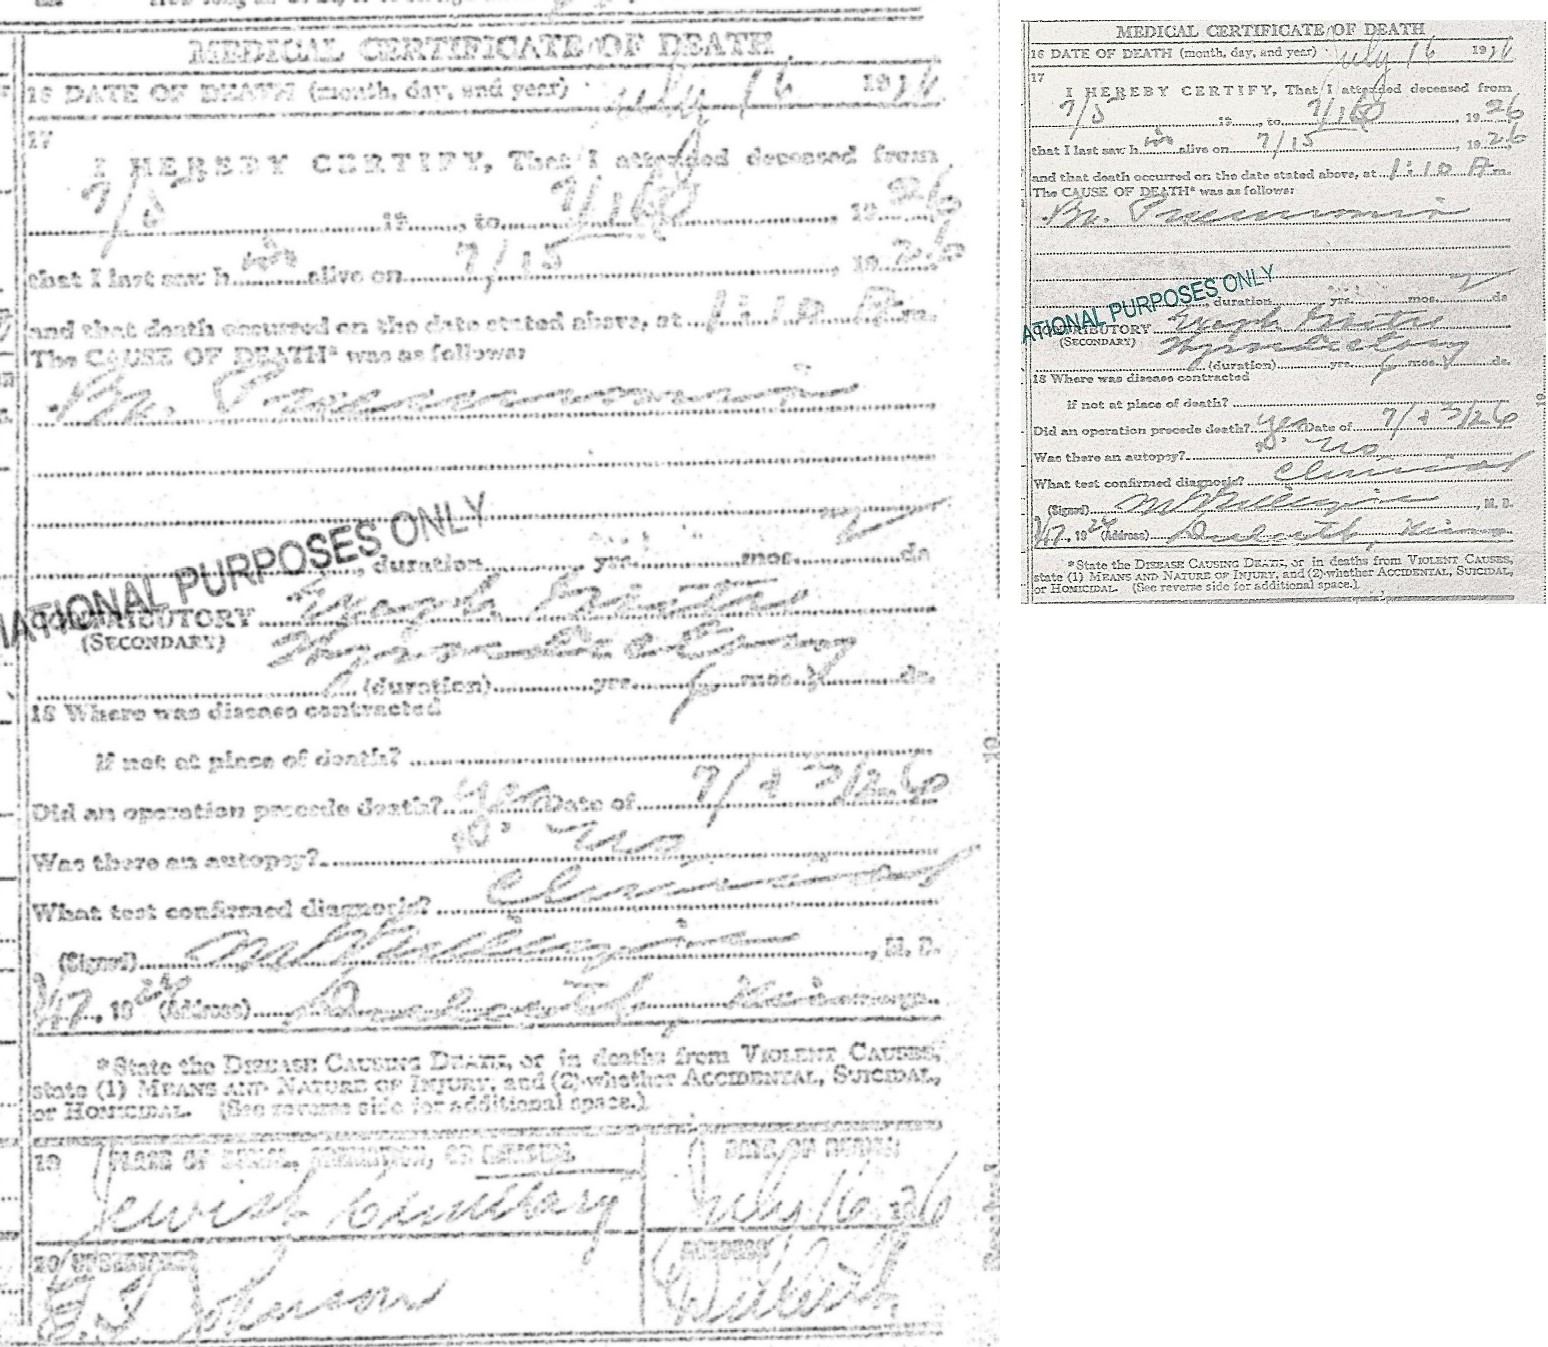 MEDICAL CERTIFICATE OF DEATH
16 DATE OF DEATH (month, day, and year) July 16 1926
17
I HEREBY CERTIFY, That I attended deceased from
7/5 19, to 7/16 1926
that I last saw h im alive on 7/15, 1926
and that death occurred on the date stated above, at 1:10 P m.
The CAUSE OF DEATH* was as follows:
Br. Pneumonia
duration yrs. mos. ds
ATIONAL PURPOSES ONLY
CONTRIBUTORY
(SECONDARY)
(duration) yrs. mos. ds.
18 Where was disease contracted
if not at place of death?
Did an operation precede death? yes Date of 7/ 26
Was there an autopsy? no
What test confirmed diagnosis? Clinical
(Signed) , M. D.
7/17, 1926 (Address) Duluth, Minn
*State the DISEASE CAUSING DEATH, or in deaths from VIOLENT CAUSES,
state (1) MEANS AND NATURE OF INJURY, and (2) whether ACCIDENTAL, SUICIDAL,
or HOMICIDAL. (See reverse side for additional space.)
19 PLACE OF BURIAL, CREMATION, OR REMOVAL
Jewish Cemetary
DATE OF BURIAL
July 16 26
20 UNDERTAKER
Johnson
ADDRESS
Duluth
MEDICAL CERTIFICATE OF DEATH
16 DATE OF DEATH (month, day, and year) July 16 1926
17
I HEREBY CERTIFY, That I attended deceased from
7/5 19, to 7/16 1926
that I last saw h im alive on 7/15, 1926
and that death occurred on the date stated above, at 1:10 P m.
The CAUSE OF DEATH* was as follows:
Br. Pneumonia
duration yrs. mos. ds
ATIONAL PURPOSES ONLY
CONTRIBUTORY
(SECONDARY)
(duration) yrs. mos. ds.
18 Where was disease contracted
if not at place of death?
Did an operation precede death? yes Date of 7/ 26
Was there an autopsy? no
What test confirmed diagnosis? Clinical
(Signed) , M. D.
7/17, 1926 (Address) Duluth, Minn
*State the DISEASE CAUSING DEATH, or in deaths from VIOLENT CAUSES,
state (1) MEANS AND NATURE OF INJURY, and (2) whether ACCIDENTAL, SUICIDAL,
or HOMICIDAL. (See reverse side for additional space.)